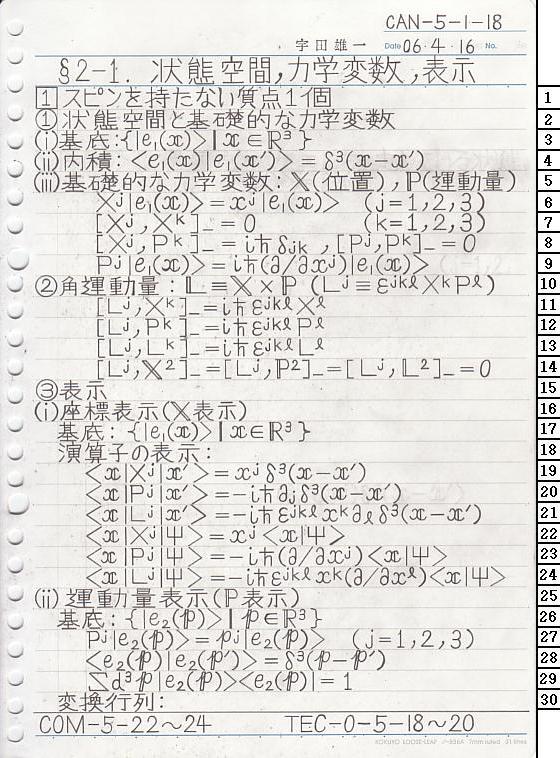 CAN-5-1-18
宇田雄一 Date 06・4・16 No.
§2-1. 状態空間,力学変数,表示
1 スピンを持たない質点1個
① 状態空間と基礎的な力学変数
(i)基底:{|e₁(x)>|x∈ℝ³}
(ii)内積:<e₁(x)|e₁(x′)>=δ³(x-x′)
(iii)基礎的な力学変数:𝕏(位置),ℙ(運動量)
Xʲ|e₁(x)>=xʲ|e₁(x)> (j=1,2,3)
[Xʲ,Xᵏ]₋=0 (k=1,2,3)
[Xʲ,Pᵏ]₋=iℏδⱼₖ,[Pʲ,Pᵏ]₋=0
Pʲ|e₁(x)>=iℏ(∂/∂xʲ)|e₁(x)>
② 角運動量:𝕃≡𝕏×ℙ (Lʲ≡εʲᵏˡXᵏPˡ)
[Lʲ,Xᵏ]₋=iℏεʲᵏˡXˡ
[Lʲ,Pᵏ]₋=iℏεʲᵏˡPˡ
[Lʲ,Lᵏ]₋=iℏεʲᵏˡLˡ
[Lʲ,𝕏²]₋=[Lʲ,ℙ²]₋=[Lʲ,𝕃²]₋=0
③ 表示
(i)座標表示(𝕏表示)
基底:{|e₁(x)>|x∈ℝ³}
演算子の表示:
<x|Xʲ|x′>=xʲδ³(x-x′)
<x|Pʲ|x′>=-iℏ∂ⱼδ³(x-x′)
<x|Lʲ|x′>=-iℏεʲᵏˡxᵏ∂ₗδ³(x-x′)
<x|Xʲ|Ψ>=xʲ<x|Ψ>
<x|Pʲ|Ψ>=-iℏ(∂/∂xʲ)<x|Ψ>
<x|Lʲ|Ψ>=-iℏεʲᵏˡxᵏ(∂/∂xˡ)<x|Ψ>
(ii)運動量表示(ℙ表示)
基底:{|e₂(p)>|p∈ℝ³}
Pʲ|e₂(p)>=pʲ|e₂(p)> (j=1,2,3)
<e₂(p)|e₂(p′)>=δ³(p-p′)
∑d³p|e₂(p)><e₂(p)|=1
変換行列:
COM-5-22~24 TEC-0-5-18~20
KOKUYO LOOSE-LEAF ノ-836A 7mm ruled 31 lines
1
2
3
4
5
6
7
8
9
10
11
12
13
14
15
16
17
18
19
20
21
22
23
24
25
26
27
28
29
30